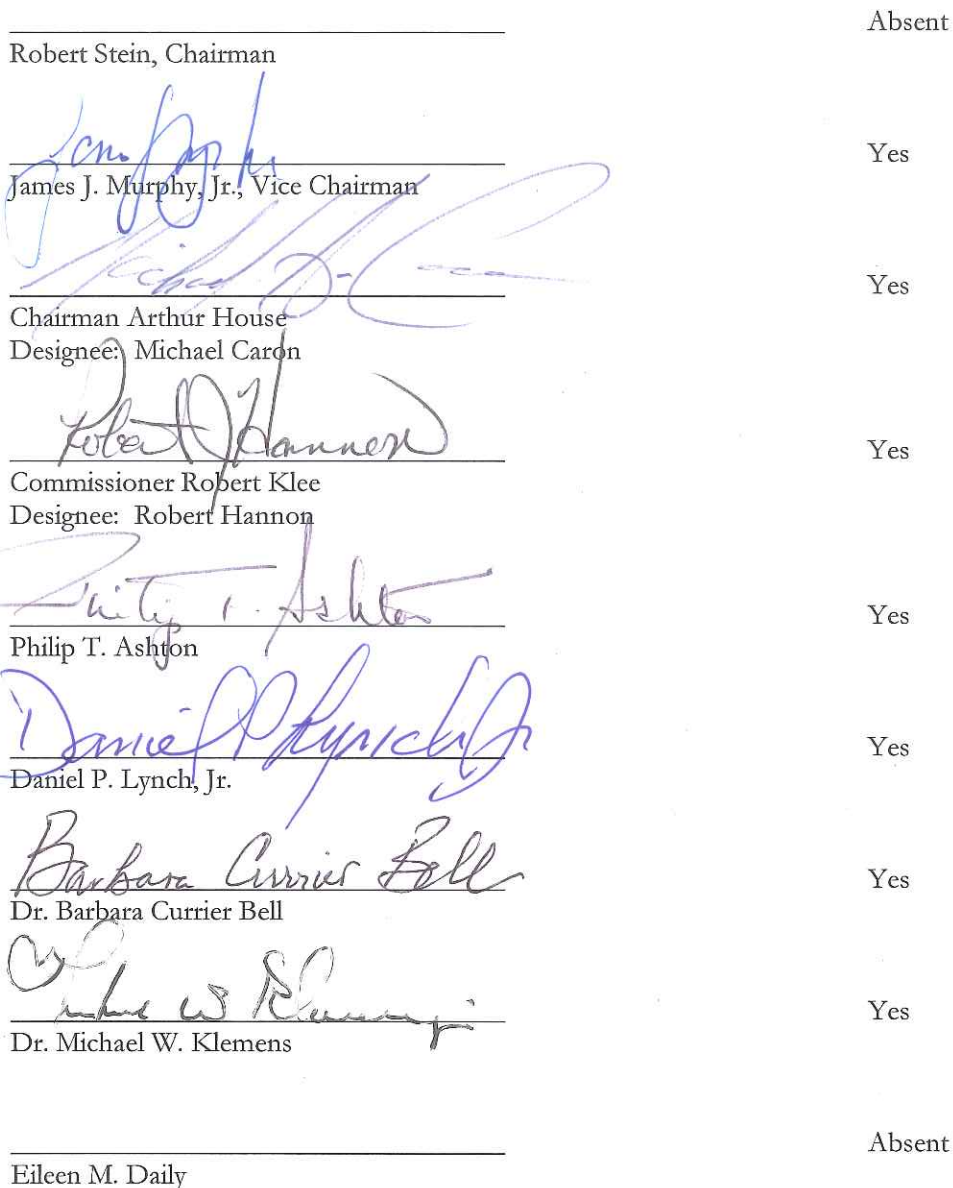 Absent
Robert Stein, Chairman
Yes
James J. Murphy, Jr., Vice Chairman
Yes
Chairman Arthur House
Designee: Michael Caron
Robert J Hannon
Yes
Commissioner Robert Klee
Designee: Robert Hannon
Philip T. Ashton
Yes
Philip T. Ashton
Daniel P Lynch Jr
Yes
Daniel P. Lynch, Jr.
Barbara Currier Bell
Yes
Dr. Barbara Currier Bell
Yes
Dr. Michael W. Klemens
Absent
Eileen M. Daily